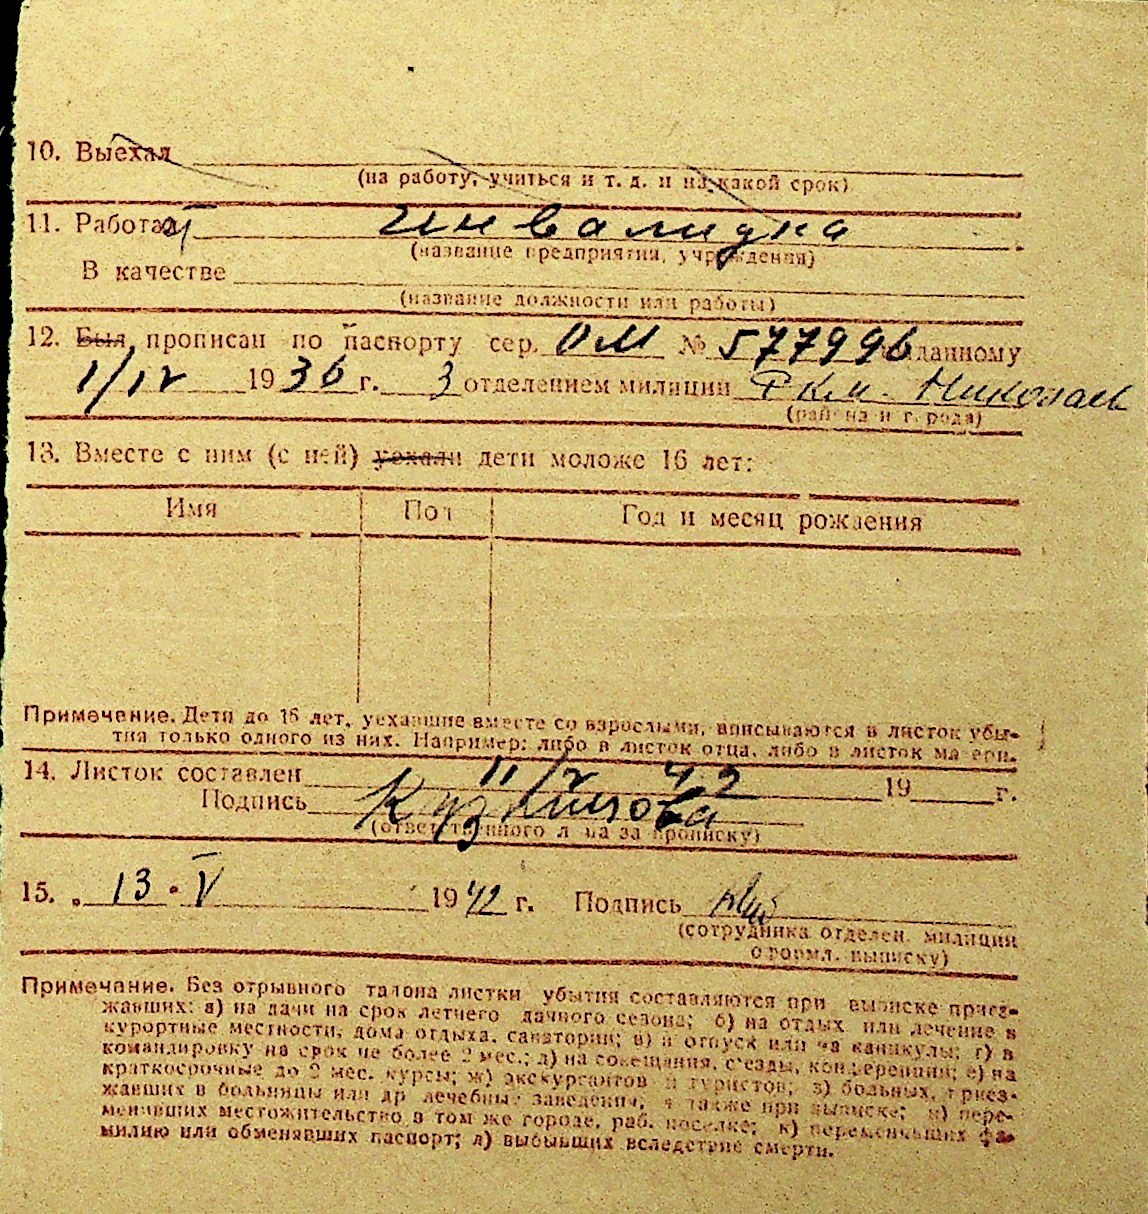 10. Выехал
(на работу, учиться и т. д. и на какой срок)
11. Работает инвалидка
(название предприятия, учреждения)
В качестве
(название должности или работы)
12. Был прописан по паспорту сер. ОМ № 577996 выданному
1/IV 1936 г. 3 отделением милиции РКМ. Николаев
(района и города)
13. Вместе с ним (с ней) уехали дети моложе 16 лет:
Имя Пол Год и месяц рождения
Примечание. Дети до 16 лет, уехавшие вместе со взрослыми, вписываются в листок убы-
тия только одного из них. Например: либо в листок отца, либо в листок матери.
14. Листок составлен 11/V 42 19 г.
Подпись Кузнецова
(ответственного лица за прописку)
15. „ 13 • V 1942 г. Подпись
(сотрудника отделен. милиции
оформл. выписку)
Примечание. Без отрывного талона листки убытия составляются при выписке приез-
жавших: а) на дачи на срок летнего дачного сезона; б) на отдых или лечение в
курортные местности, дома отдыха, санатории; в) в отпуск или на каникулы; г) в
командировку на срок не более 2 мес.; д) на совещания, съезды, конференции; е) на
краткосрочные до 2 мес. курсы; ж) экскурсантов и туристов; з) больных, приез-
жавших в больницы или др лечебные заведения, а также при выписке; и) пере-
менивших местожительство в том же городе, раб. поселке; к) переменивших фа-
милию или обменявших паспорт; л) выбывших вследствие смерти.